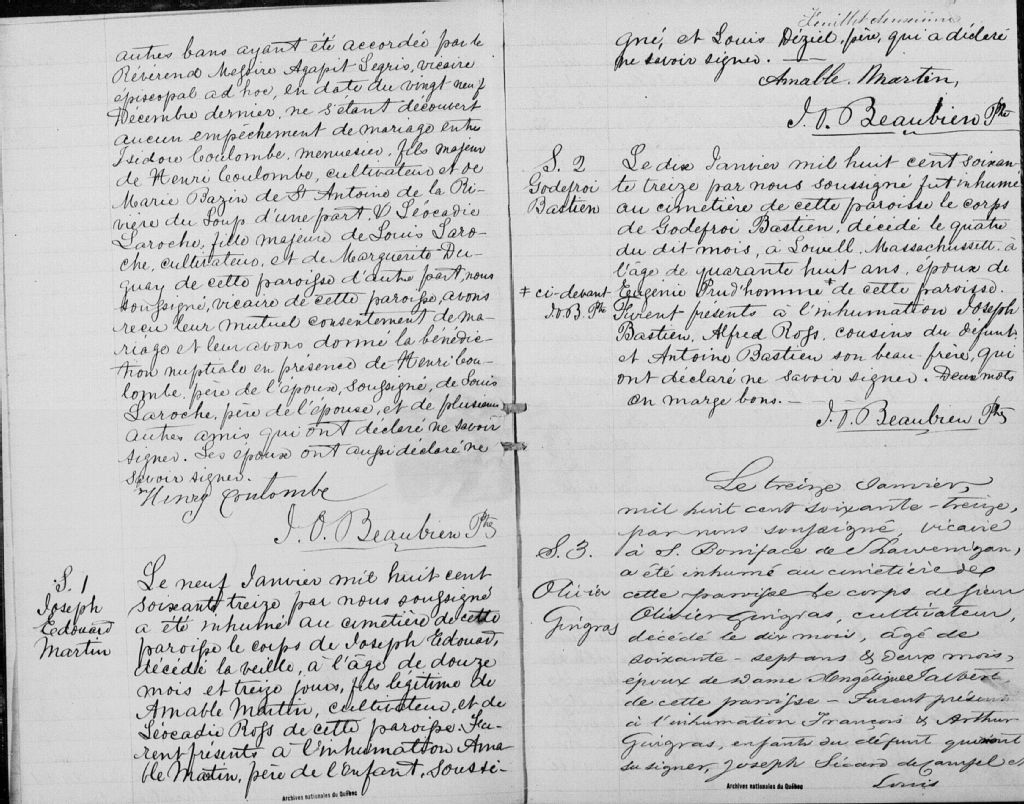 autres bans ayant été accordée par le
Révérend Messire Agapit Legris, vicaire
épiscopal ad hoc, en date du vingt neuf
Décembre dernier, ne s'étant découvert
aucun empêchement de mariage entre
Isidore Coulombe, menuisier, fils majeur
de Henri Coulombe, cultivateur et de
Marie Bazin de St Antoine de la Ri-
vière du Loup d'une part & Léocadie
Laroche, fille majeure de Louis Laro-
che, cultivateur, et de Marguerite Du-
guay de cette paroisse d'autre part, nous
soussigné, vicaire de cette paroisse, avons
reçu leur mutuel consentement de ma-
riage et leur avons donné la bénédic-
tion nuptiale en présence de Henri Cou-
lombe, père de l'époux, soussigné, de Louis
Laroche, père de l'épouse, et de plusieurs
autres amis qui ont déclaré ne savoir
signer. Les époux ont aussi déclaré ne
savoir signer.
Henry Coulombe
J. O. Beaubien Ptre
S. 1
Joseph
Edouard
Martin
Le neuf Janvier mil huit cent
soixante treize par nous soussigné
a été inhumé au cimetière de cette
paroisse le corps de Joseph Edouard,
décédé la veille, à l'âge de douze
mois et treize jours, fils légitime de
Amable Martin, cultivateur, et de
Léocadie Ross de cette paroisse. Fu-
rent présents à l'inhumation Ama-
ble Martin, père de l'enfant, soussi-
Archives nationales du Québec
Feuillet deuxième
gné, et Louis Déziel, père, qui a déclaré
ne savoir signer. —
Amable Martin,
J. O. Beaubien Ptre
S. 2
Godefroi
Bastien
Le dix Janvier mil huit cent soixan-
te treize par nous soussigné fut inhumé
au cimetière de cette paroisse le corps
de Godefroi Bastien, décédé le quatre
du dit mois, à Lowell, Massachussett, à
l'âge de quarante huit ans, époux de
Eugénie Prud'homme ‡ de cette paroisse.
‡ ci-devant
J.O.B. Ptre
Furent présents à l'inhumation Joseph
Bastien, Alfred Ross, cousins du défunt
et Antoine Bastien son beau-frère, qui
ont déclaré ne savoir signer. Deux mots
en marge bons. —
J. O. Beaubien Ptre
S. 3.
Olivier
Gingras
Le treize Janvier,
mil huit cent soixante-treize,
par nous soussigné, vicaire
à S. Boniface de Shawenigan,
a été inhumé au cimetière de
cette paroisse le corps de fieu
Olivier Gingras, cultivateur,
décédé le dix mois, âgé de
soixante-sept ans & deux mois,
époux de Dame Angélique Jalbert
de cette paroisse — Furent présents
à l'inhumation François & Arthur
Gingras, enfants du défunt qui ont
su signer, Joseph Sicard de Carufel et
Louis
Archives nationales du Québec